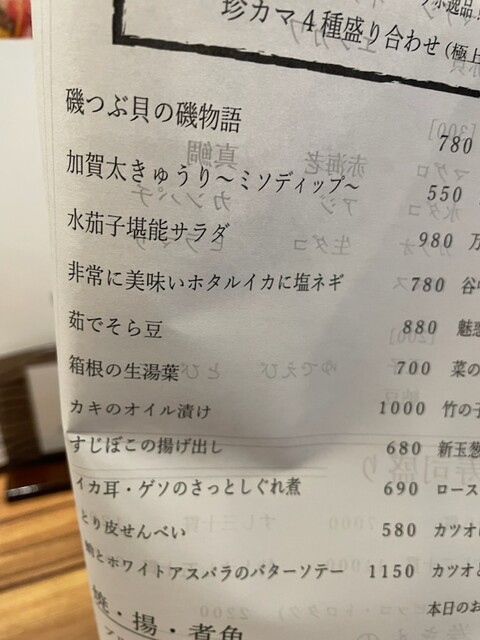 珍カマ4種盛り合わせ(極上
磯つぶ貝の磯物語 780
加賀太きゅうり〜ミソディップ〜 550
水茄子堪能サラダ 980 万
非常に美味いホタルイカに塩ネギ 780 谷中
茹でそら豆 880 魅惑
箱根の生湯葉 700 菜の
カキのオイル漬け 1000 竹の子
すじぼこの揚げ出し 680 新玉葱
イカ耳・ゲソのさっとしぐれ煮 690 ロース
とり皮せんべい 580 カツオ
蛸とホワイトアスパラのバターソテー 1150 カツオと
本日のお
焼・揚・煮魚